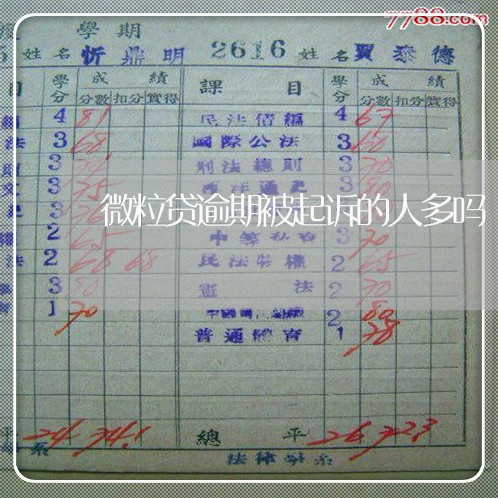 7788.com
學期
5 姓名 忻鼎明 2616 姓名 賈泰德
目 學分 成績 課目 學分 成績
分數 扣分 實得 分數 扣分 實得
4 81 民法債編 4 67
法 3 68 國際公法 3 60
3 刑法總則 3 70
3 75 3 80
微粒贷逾期被起诉的人多吗
2 65 3 70
法 2 68 68 民法物權 2 65
3 80 憲法 2 70
1 70 2 80
普通體育 1 78
平 24 74.1 總平 26 72.3
系 法律學系